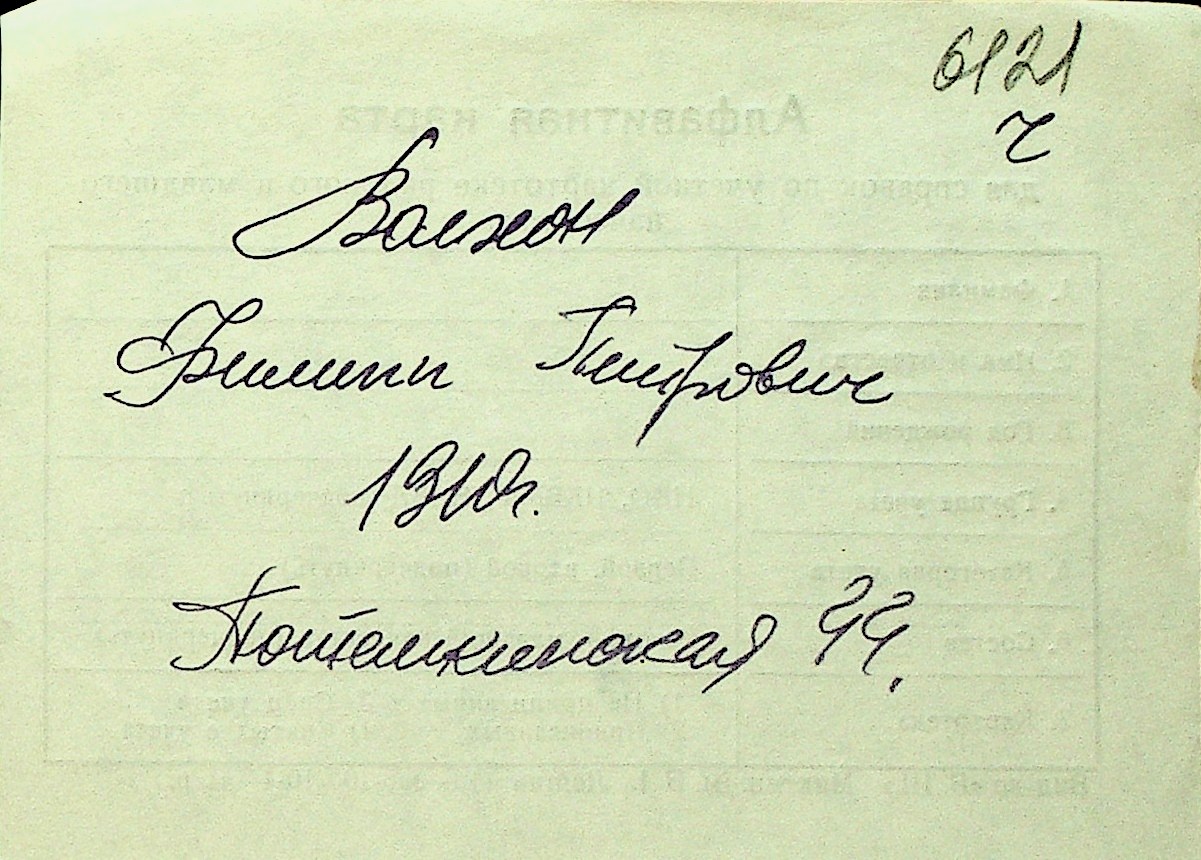 6121
ч
Волхон
Филипп Питрович
1910г.
Потемкинская 99.